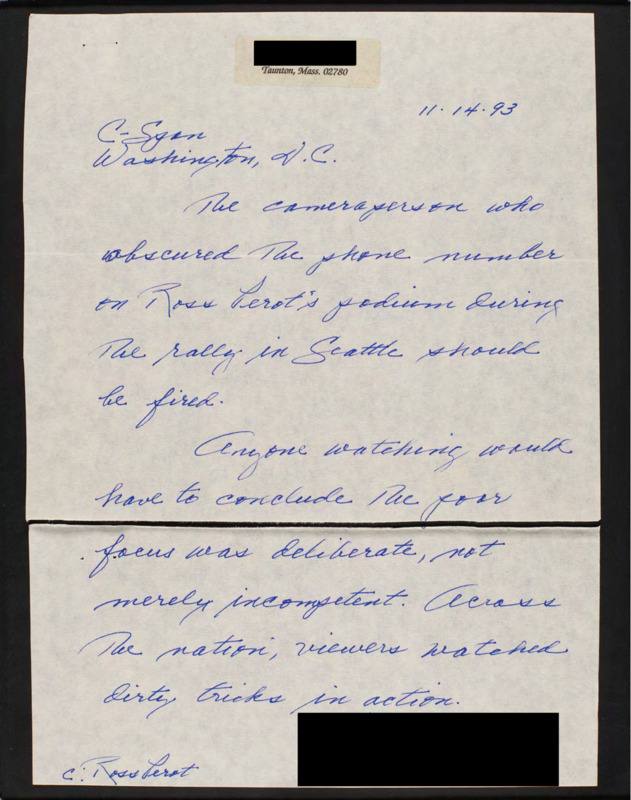 Taunton, Mass. 02780
11·14·93
C-Span
Washington, D.C.
The cameraperson who
obscured the phone number
on Ross Perot's podium during
the rally in Seattle should
be fired.
Anyone watching would
have to conclude the poor
focus was deliberate, not
merely incompetent. Across
the nation, viewers watched
dirty tricks in action.
c: Ross Perot